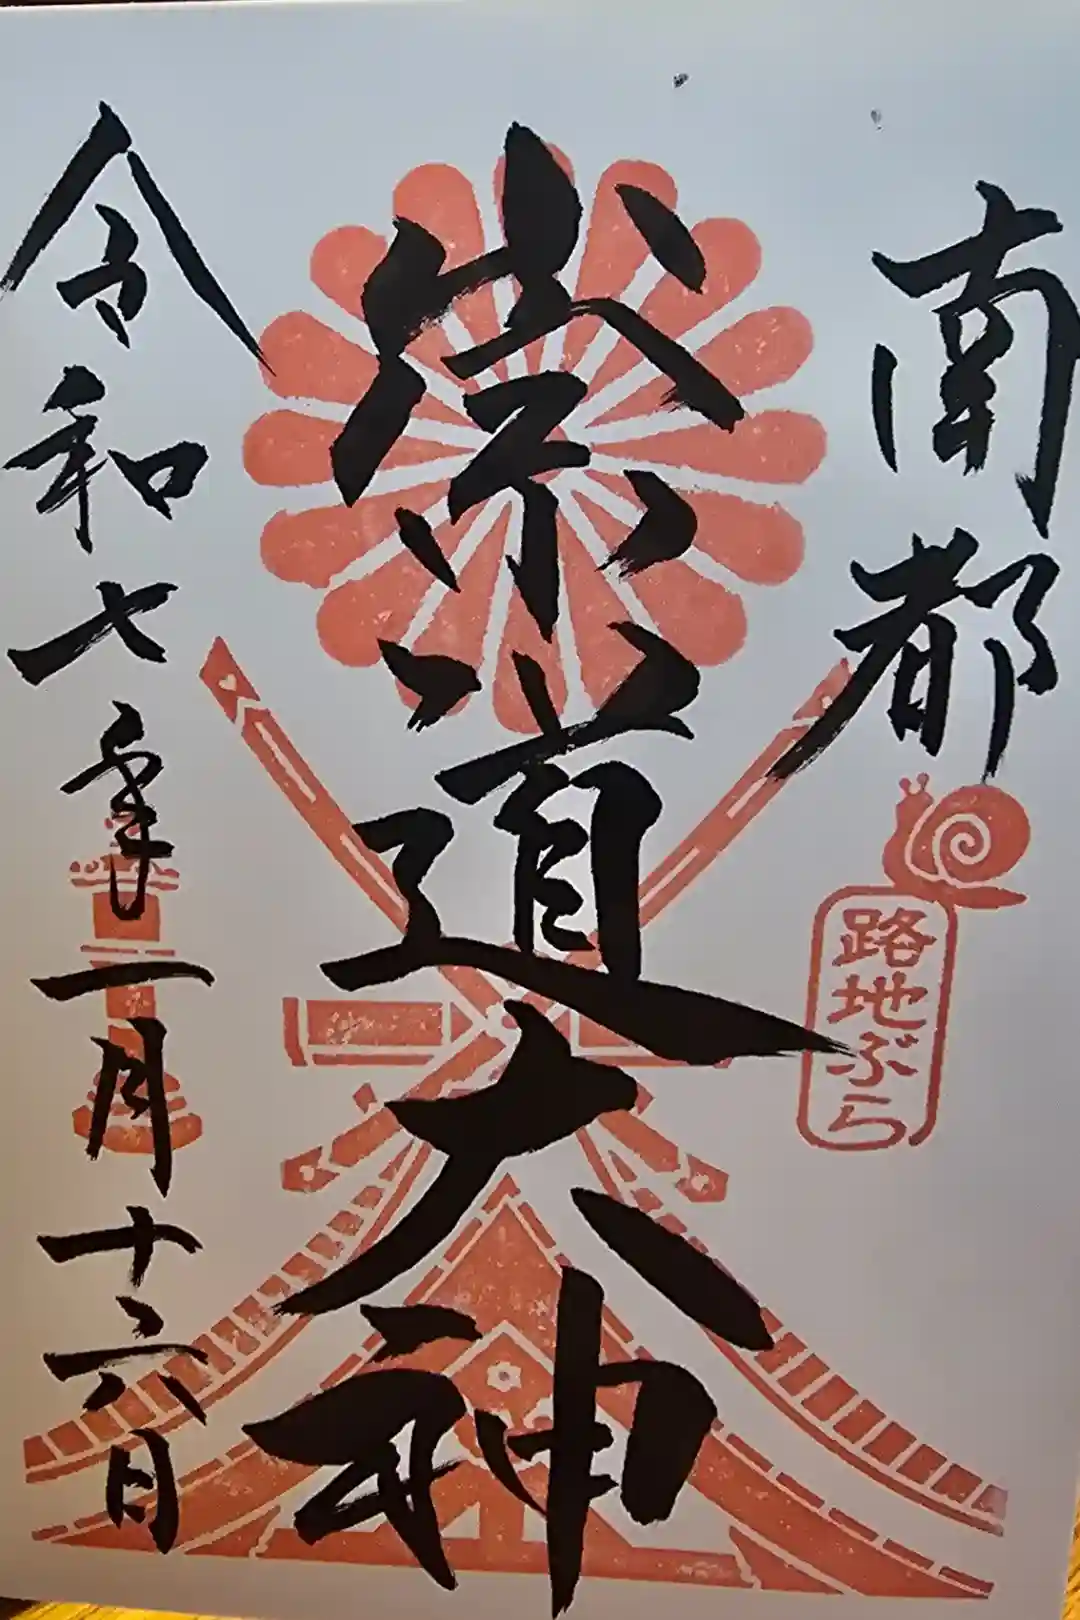 南都
路地ぶら
崇道大神
令和七年一月十六日